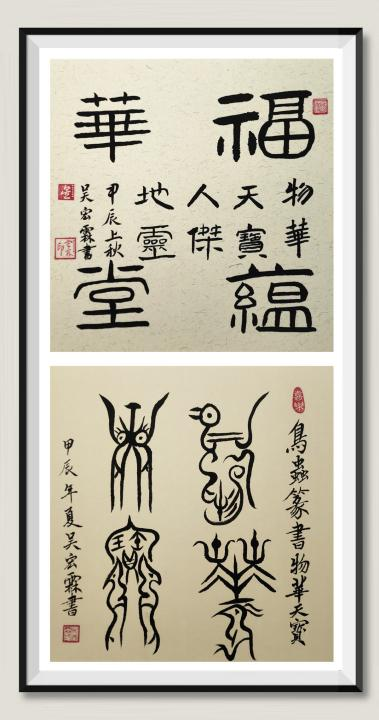 福蘊
華堂
物華
天寶
人傑
地靈
甲辰上秋
吳宏霖書
鳥蟲篆書物華天寶
物華
天寶
甲辰年夏吳宏霖書